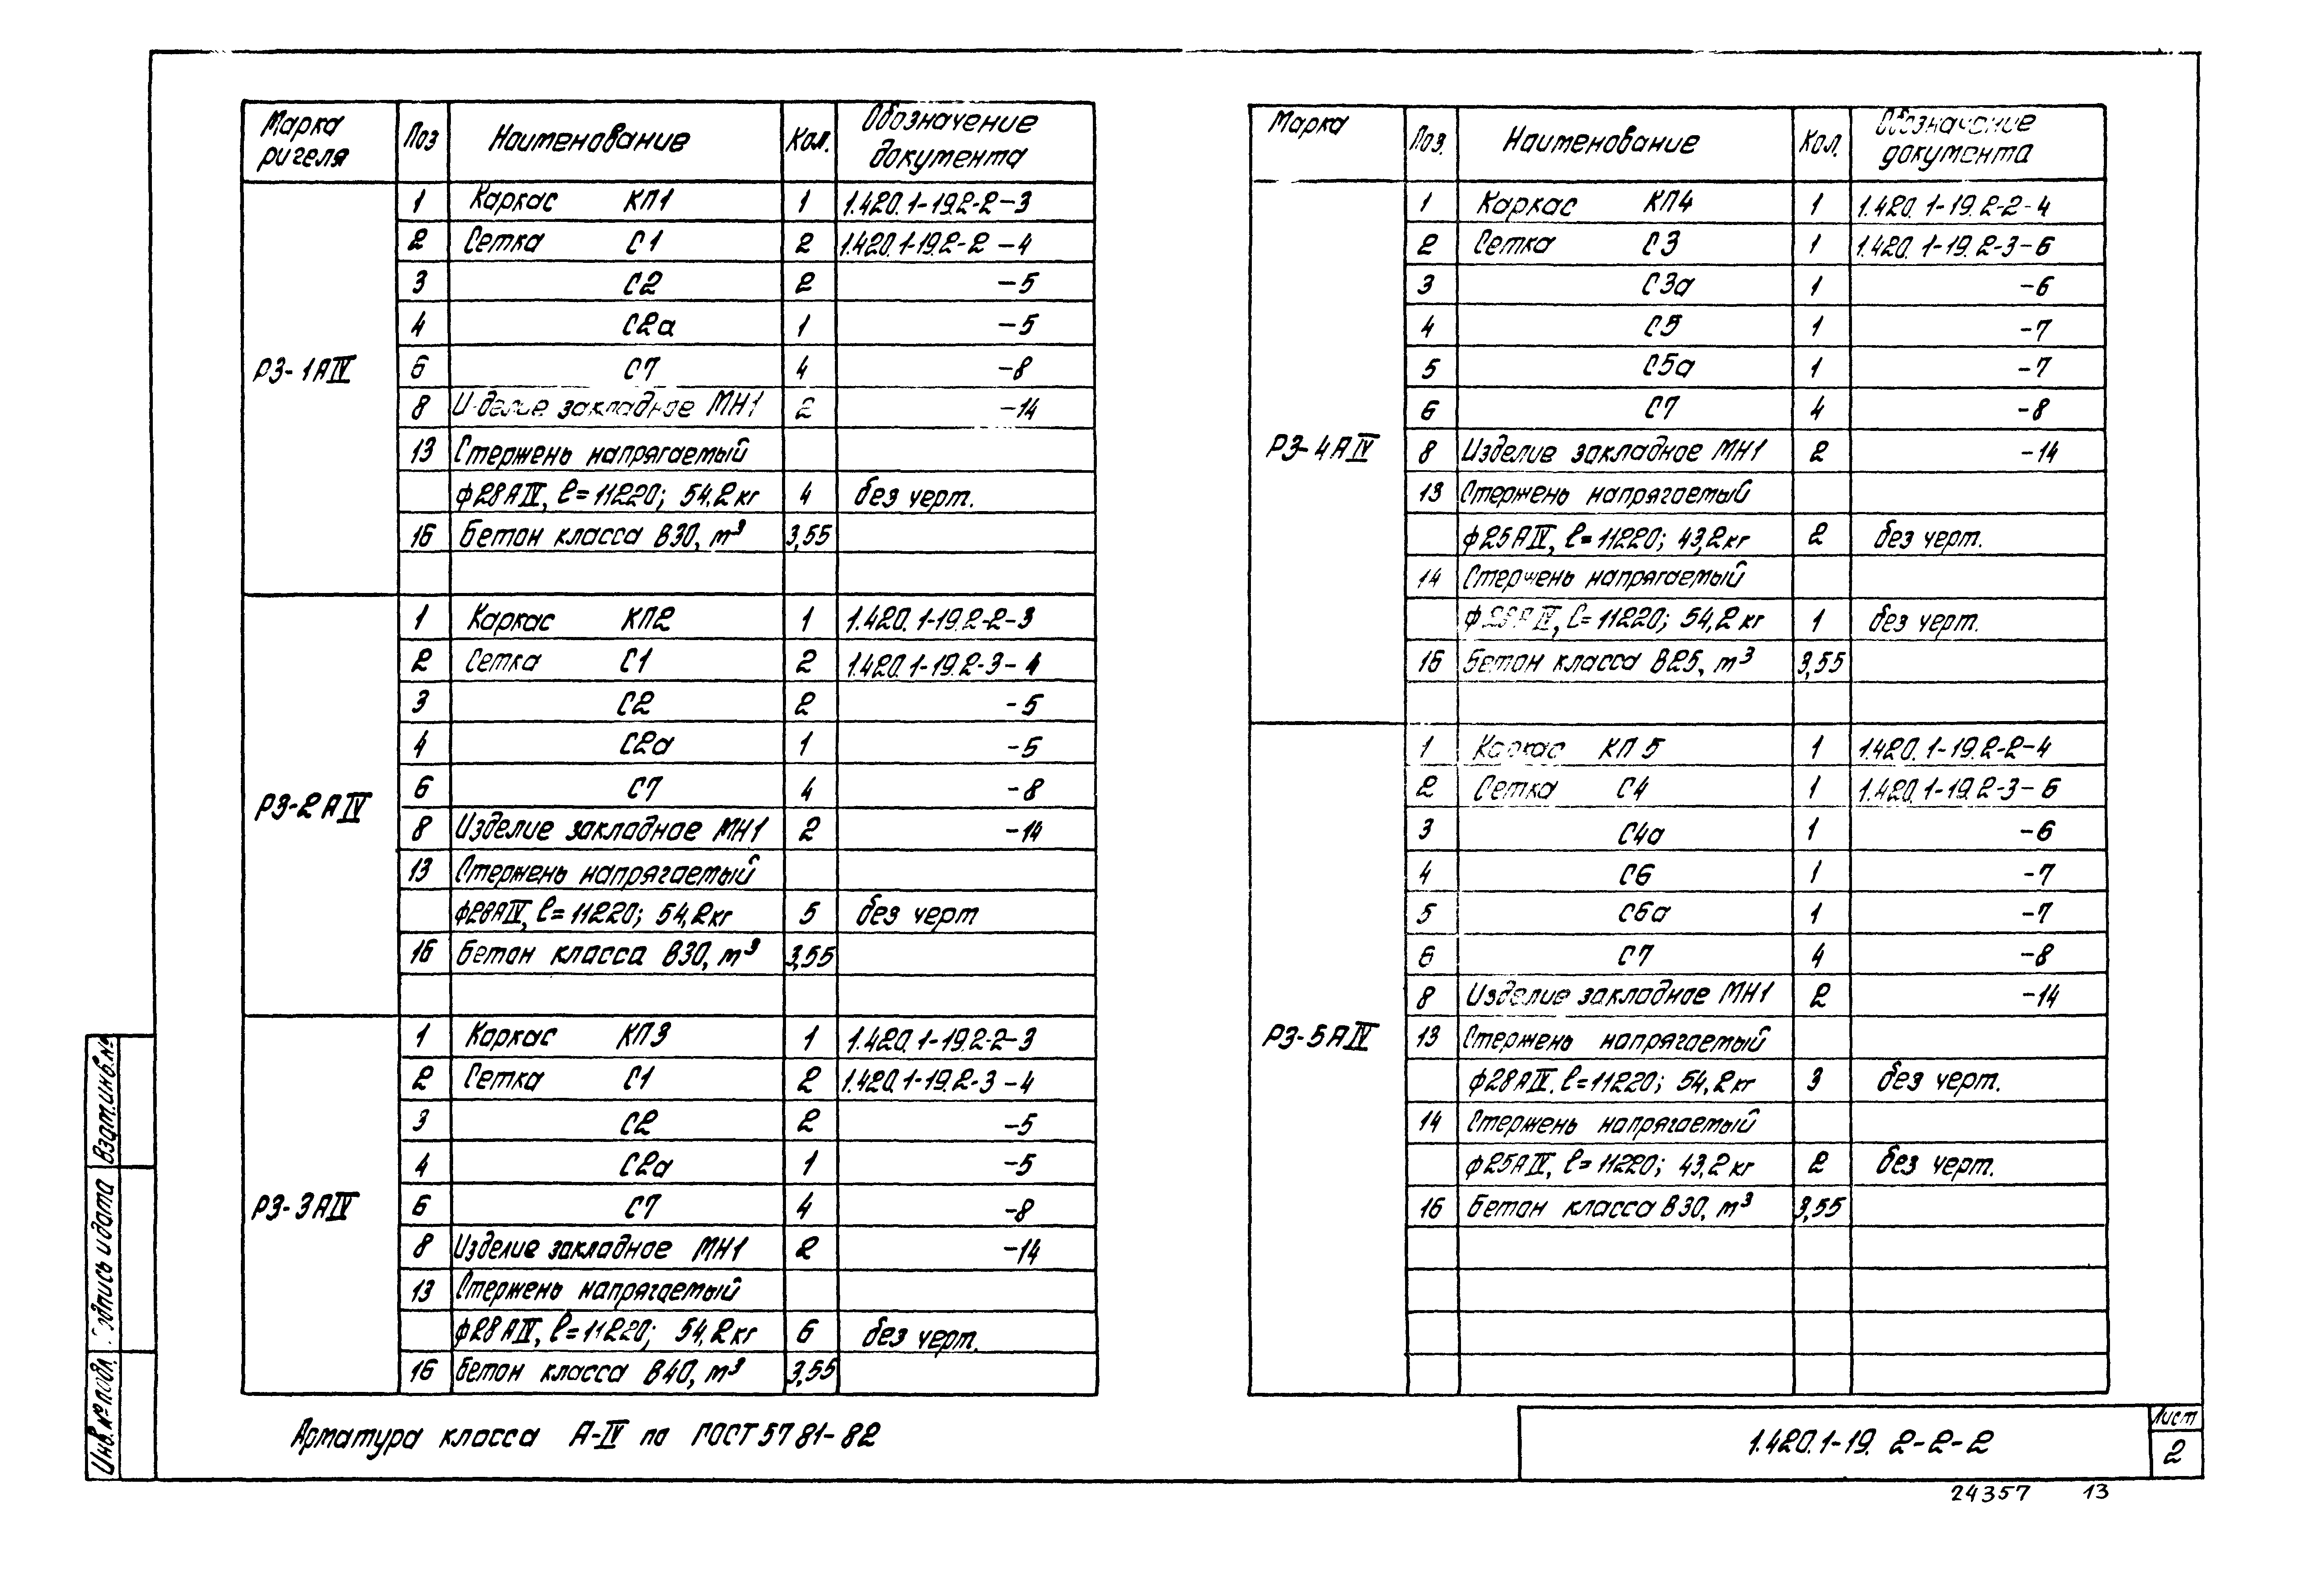 Марка ригеля Поз Наименование Кол. Обозначение документа
Р3-1АIV
1 Каркас КП1 1 1.420.1-19.2-2-3
2 Сетка С1 2 1.420.1-19.2-2-4
3 С2 2 -5
4 С2а 1 -5
6 С7 4 -8
8 Изделие закладное МН1 2 -14
13 Стержень напрягаемый
ф28АIV, ℓ=11220; 54,2кг 4 без черт.
16 Бетон класса В30, м³ 3,55
Р3-2АIV
1 Каркас КП2 1 1.420.1-19.2-2-3
2 Сетка С1 2 1.420.1-19.2-3-4
3 С2 2 -5
4 С2а 1 -5
6 С7 4 -8
8 Изделие закладное МН1 2 -14
13 Стержень напрягаемый
ф28АIV, ℓ=11220; 54,2кг 5 без черт
16 Бетон класса В30, м³ 3,55
Р3-3АIV
1 Каркас КП3 1 1.420.1-19.2-2-3
2 Сетка С1 2 1.420.1-19.2-3-4
3 С2 2 -5
4 С2а 1 -5
6 С7 4 -8
8 Изделие закладное МН1 2 -14
13 Стержень напрягаемый
ф28АIV, ℓ=11220; 54,2кг 6 без черт.
16 Бетон класса В40, м³ 3,55
Арматура класса А-IV по ГОСТ 5781-82
Марка Поз. Наименование Кол. Обозначение документа
Р3-4АIV
1 Каркас КП4 1 1.420.1-19.2-2-4
2 Сетка С3 1 1.420.1-19.2-3-6
3 С3а 1 -6
4 С5 1 -7
5 С5а 1 -7
6 С7 4 -8
8 Изделие закладное МН1 2 -14
13 Стержень напрягаемый
ф25АIV, ℓ=11220; 43,2кг 2 без черт.
14 Стержень напрягаемый
ф28АIV, ℓ=11220; 54,2кг 1 без черт.
16 Бетон класса В25, м³ 3,55
Р3-5АIV
1 Каркас КП5 1 1.420.1-19.2-2-4
2 Сетка С4 1 1.420.1-19.2-3-6
3 С4а 1 -6
4 С6 1 -7
5 С6а 1 -7
6 С7 4 -8
8 Изделие закладное МН1 2 -14
13 Стержень напрягаемый
ф28АIV, ℓ=11220; 54,2кг 3 без черт.
14 Стержень напрягаемый
ф25АIV, ℓ=11220; 43,2кг 2 без черт.
16 Бетон класса В30, м³ 3,55
1.420.1-19. 2-2-2
Лист
2
24357 13
Взам.инв.№
Подпись и дата
Инв.№ подл.